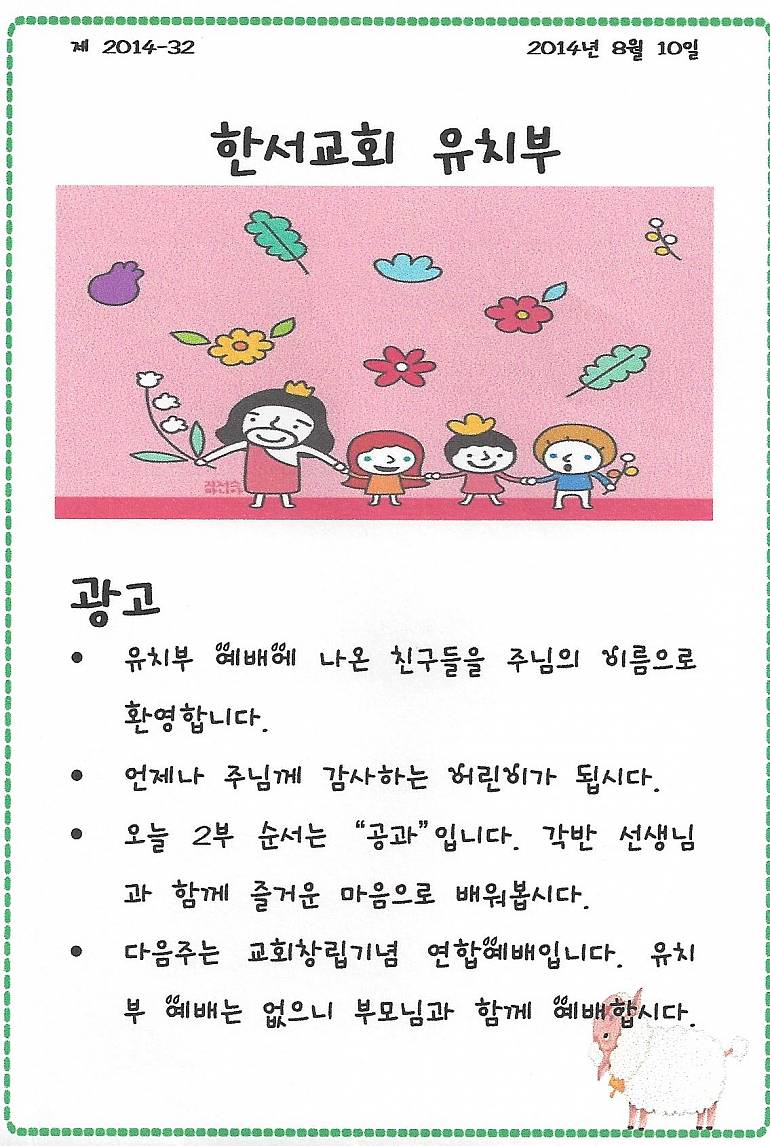 제 2014-32 2014년 8월 10일
한서교회 유치부
광고
• 유치부 예배에 나온 친구들을 주님의 이름으로
환영합니다.
• 언제나 주님께 감사하는 어린이가 됩시다.
• 오늘 2부 순서는 “공과”입니다. 각반 선생님
과 함께 즐거운 마음으로 배워봅시다.
• 다음주는 교회창립기념 연합예배입니다. 유치
부 예배는 없으니 부모님과 함께 예배합시다.